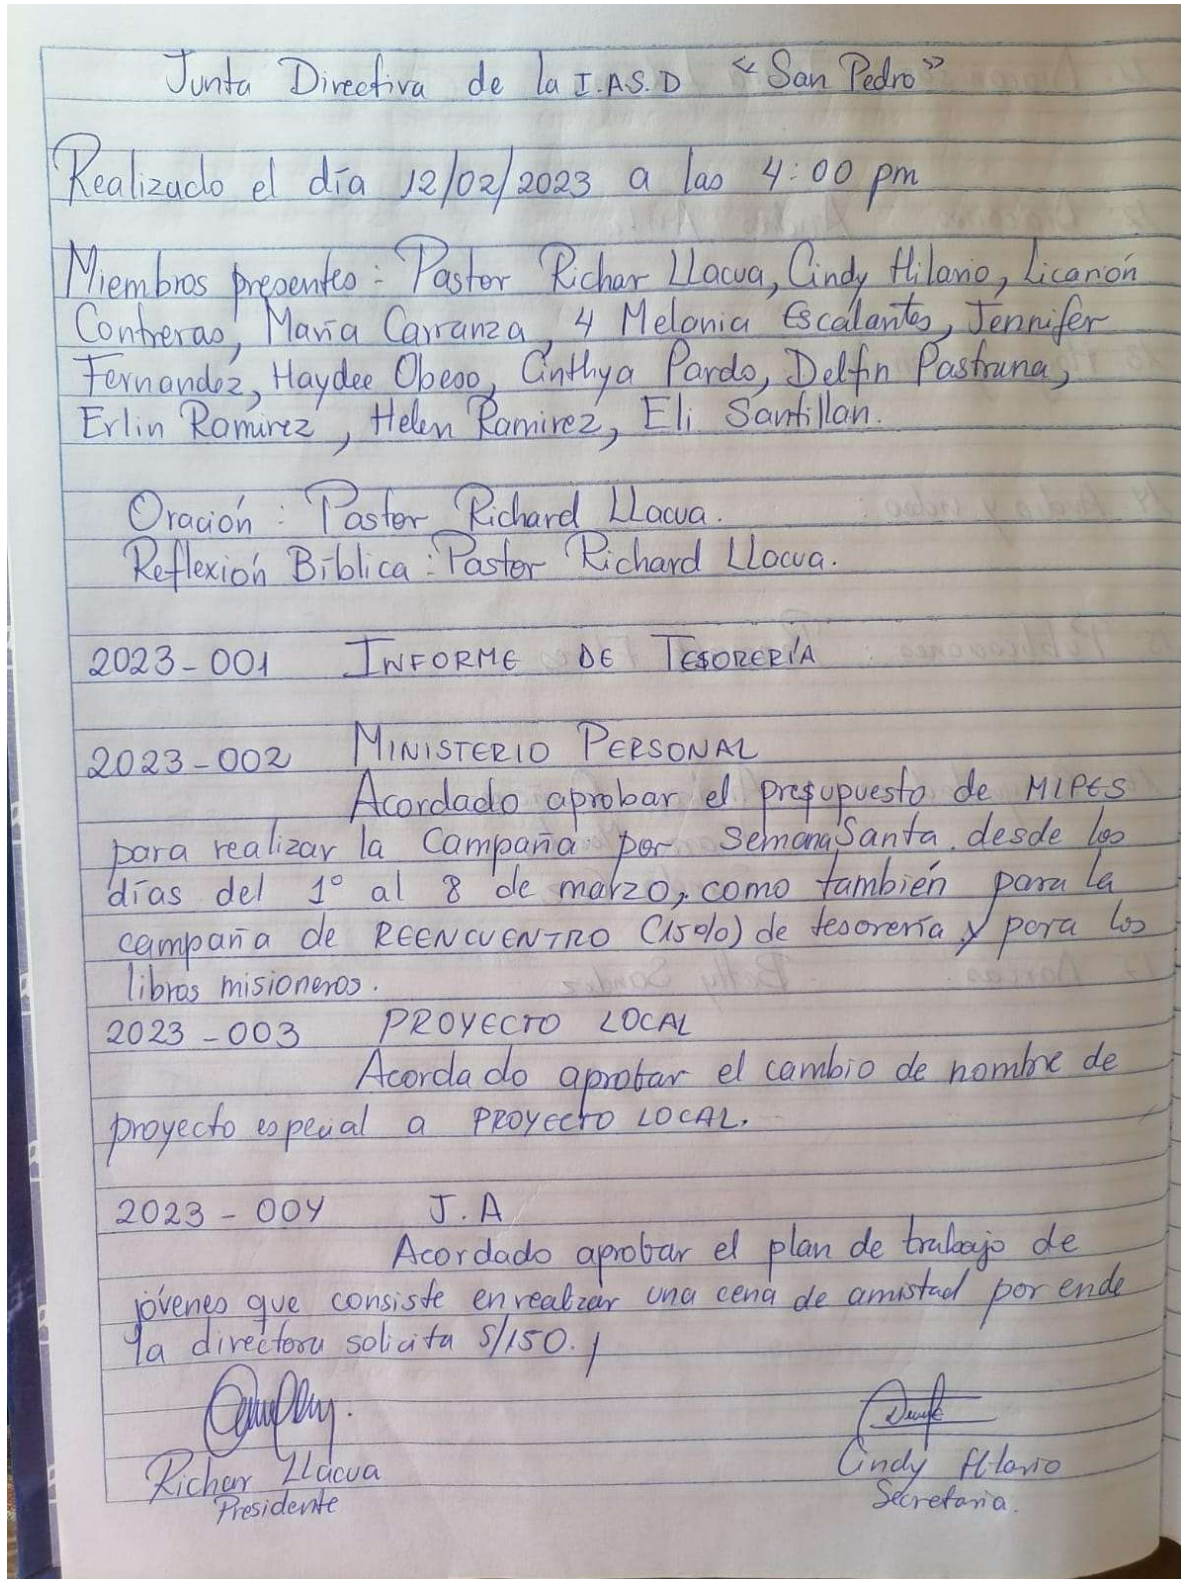 Junta Directiva de la I.A.S.D "San Pedro"
Realizado el día 12/02/2023 a las 4:00 pm
Miembros presentes: Pastor Richar Llacua, Cindy Hilario, Licanón
Contreras, María Carranza, 4 Melania Escalantes, Jennifer
Fernandez, Haydee Obeso, Cinthya Pardo, Delfin Pastrana,
Erlin Ramirez, Helen Ramirez, Eli Santillan.
Oración: Pastor Richard Llacua.
Reflexión Bíblica: Pastor Richard Llacua.
2023-001 INFORME DE TESORERÍA
2023-002 MINISTERIO PERSONAL
Acordado aprobar el presupuesto de MIPES
para realizar la Campaña por Semana Santa desde los
días del 1° al 8 de marzo, como también para la
campaña de REENCUENTRO (15%) de tesorería y para los
libros misioneros.
2023-003 PROYECTO LOCAL
Acordado aprobar el cambio de nombre de
proyecto especial a PROYECTO LOCAL.
2023-004 J.A
Acordado aprobar el plan de trabajo de
jóvenes que consiste en realizar una cena de amistad por ende
la directora solicita S/150.
Richar Llacua
Cindy Hilario
Presidente
Secretaria.